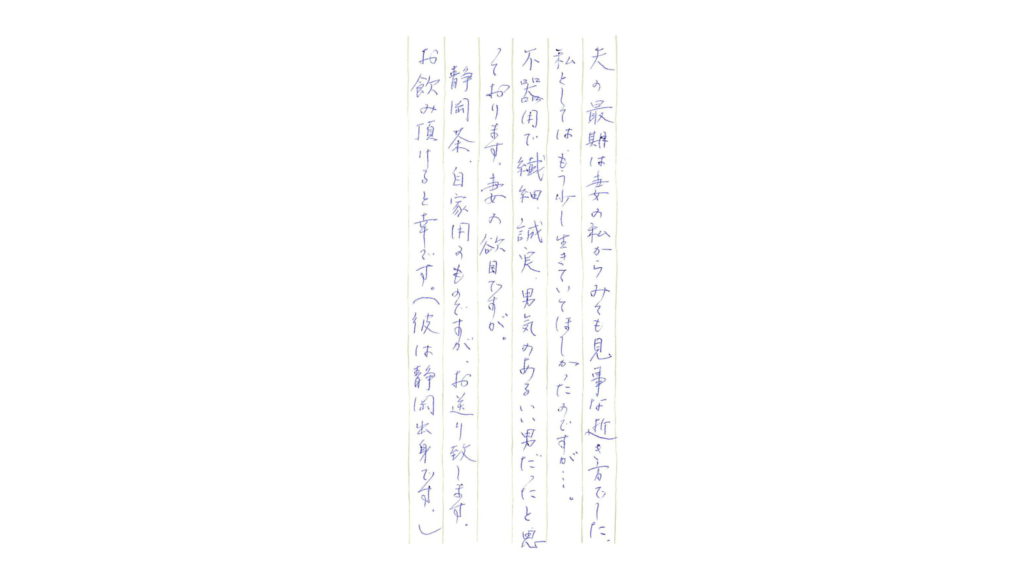 夫の最期は妻の私からみても見事な逝き方でした。
私としては、もう少し生きていてほしかったのですが…。
不器用で繊細、誠実、男気のあるいい男だったと思
っております。妻の欲目ですが。
静岡茶、自家用のものですが、お送り致します。
お飲み頂けると幸です。(彼は静岡出身です。)